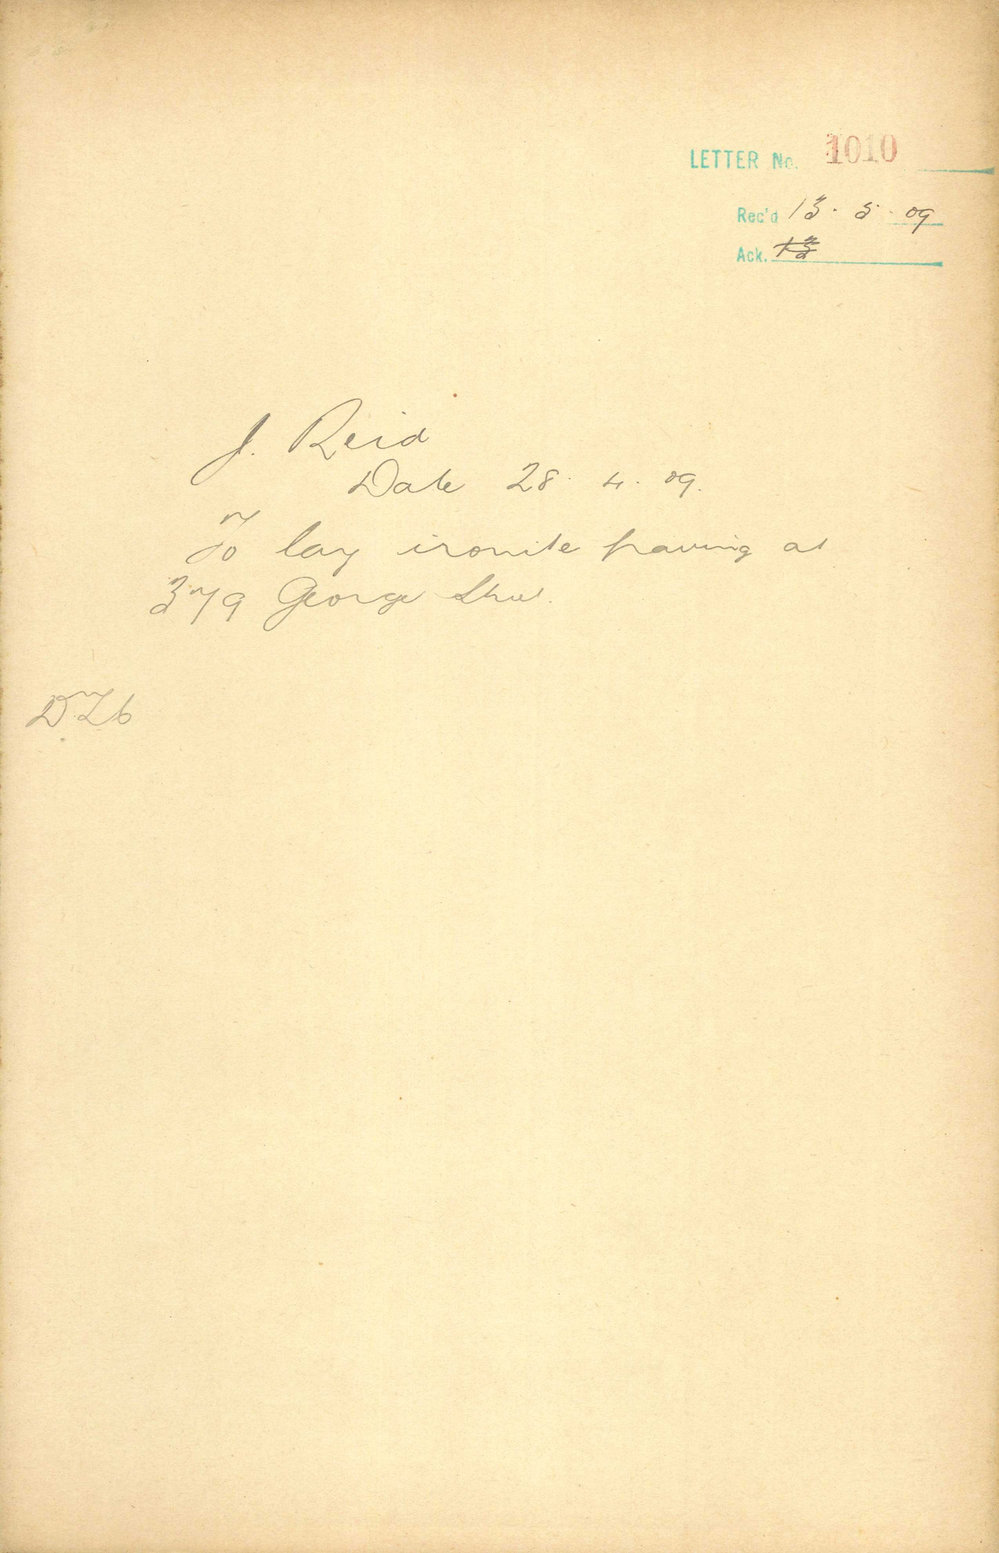 LETTER No. 1010
Rec'd 13. 5. 09
Ack. 13
J. Reid
Date 28. 4. 09.
To lay ironite paving at
379 George Street.